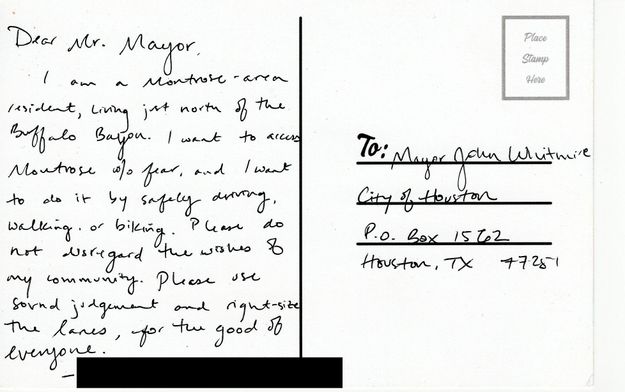 Dear Mr. Mayor,
I am a Montrose-area
resident, living just north of the
Buffalo Bayou. I want to access
Montrose w/o fear, and I want
to do it by safely driving,
walking, or biking. Please do
not disregard the wishes of
my community. Please use
sound judgement and right-size
the lanes, for the good of
everyone.
-
Place
Stamp
Here
To: Mayor John Whitmire
City of Houston
P.O. Box 1562
Houston, TX 77251